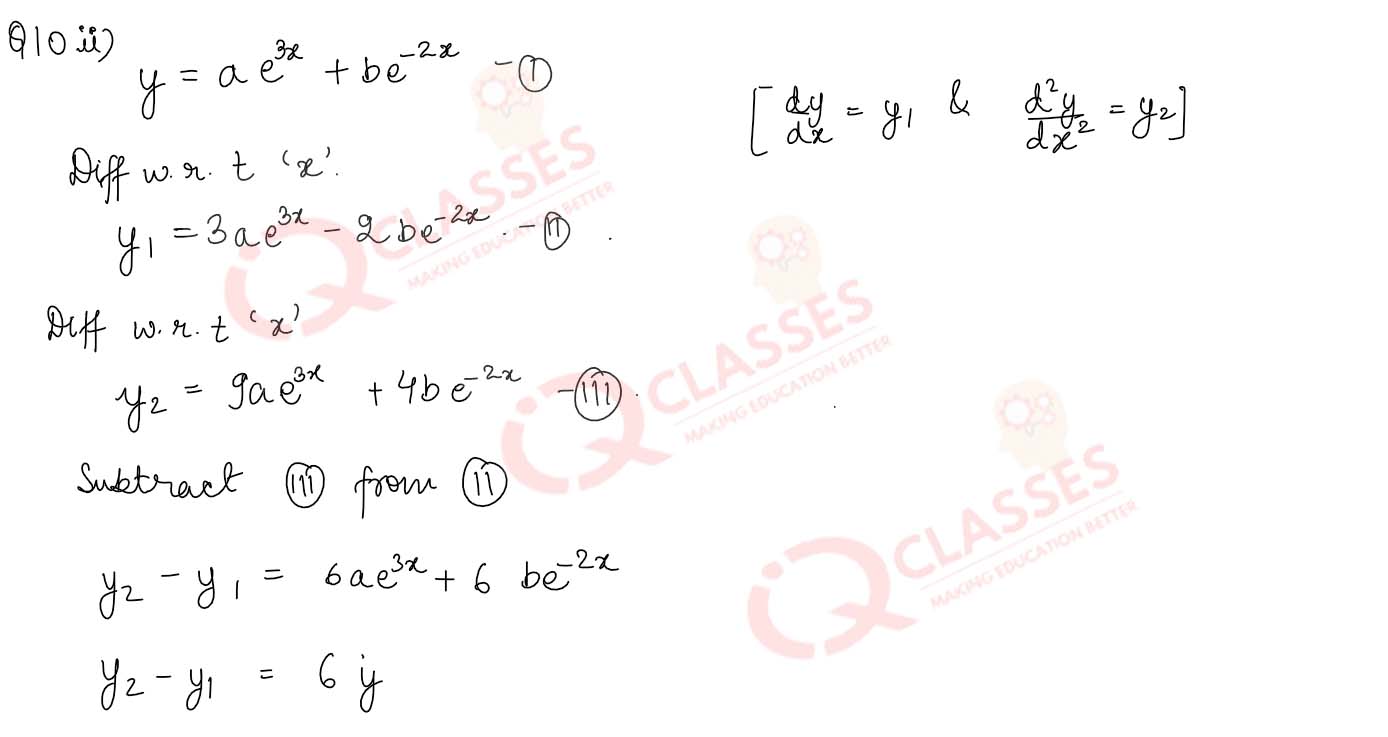 Q10 ii)
y = ae^{3x} + be^{-2x} - Ⓘ
[dy/dx = y₁ & d²y/dx² = y₂]
Diff w.r.t 'x'.
y₁ = 3ae^{3x} - 2be^{-2x} . - (II) .
Diff w.r.t 'x'
y₂ = 9ae^{3x} + 4be^{-2x} - (III) .
Subtract (III) from (II)
y₂ - y₁ = 6ae^{3x} + 6 be^{-2x}
y₂ - y₁ = 6 y
IQ CLASSES
MAKING EDUCATION BETTER
IQ CLASSES
MAKING EDUCATION BETTER
IQ CLASSES
MAKING EDUCATION BETTER